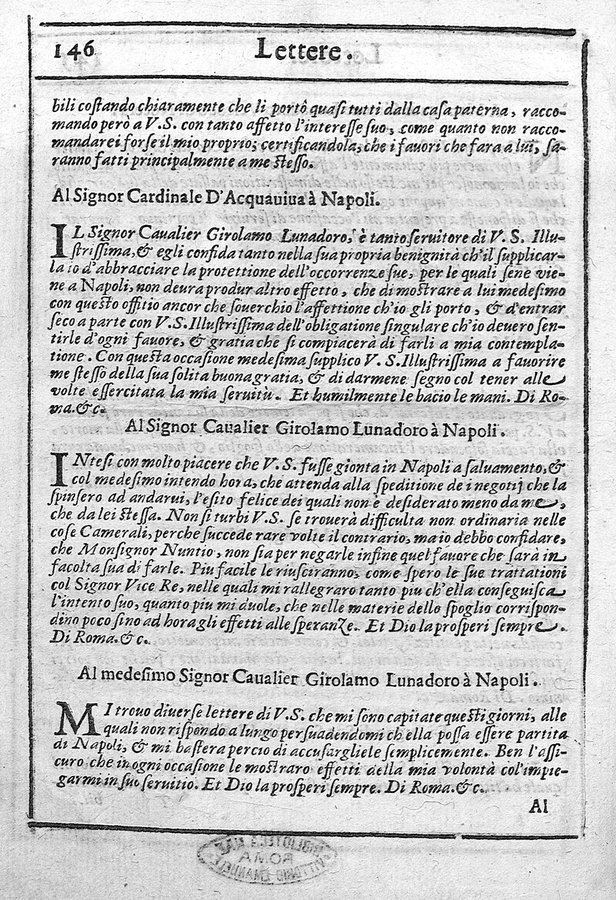 146 Lettere.
bili costando chiaramente che li portò quasi tutti dalla casa paterna, racco-
mando però a V.S. con tanto affetto l'interesse suo, come quanto non racco-
mandarei forse il mio proprio; certificandola, che i favori che fara a lui, sa-
ranno fatti principalmente a me stesso.
Al Signor Cardinale D'Acquauiua à Napoli.
IL Signor Caualier Girolamo Lunadoro, è tanto seruitore di V. S. Illu-
strissima, & egli confida tanto nella sua propria benignità ch'il supplicar-
la io d'abbracciare la protettione dell'occorrenze sue, per le quali sene vie-
ne a Napoli, non deura produr altro effetto, che di mostrare a lui medesimo
con questo offitio ancor che souerchio l'affettione ch'io gli porto, & d'entrar
seco a parte con V.S. Illustrissima dell'obligatione singulare ch'io deuero sen-
tirle d'ogni fauore, & gratia che si compiacerà di farli a mia contempla-
tione. Con questa occasione medesima supplico V. S. Illustrissima a fauorire
me stesso della sua solita buona gratia, & di darmene segno col tener alle
volte essercitata la mia seruitù. Et humilmente le bacio le mani. Di Ro-
ma. &c.
Al Signor Caualier Girolamo Lunadoro à Napoli.
INtesi con molto piacere che V. S. fusse gionta in Napoli a saluamento, &
col medesimo intendo hora, che attenda alla speditione de i negotij che la
spinsero ad andarui, l'esito felice dei quali non è desiderato meno da me,
che da lei stessa. Non si turbi V.S. se trouerà difficulta non ordinaria nelle
cose Camerali, perche succede rare volte il contrario, ma io debbo confidare,
che Monsignor Nuntio, non sia per negarle infine quel fauore che sarà in
facolta sua di farle. Piu facile le riusciranno, come spero le sue trattationi
col Signor Vice Re, nelle quali mi rallegraro tanto piu ch'ella conseguisca
l'intento suo, quanto piu mi duole, che nelle materie dello spoglio corrispon-
dino poco sino ad hora gli effetti alle speranze. Et Dio la prosperi sempre.
Di Roma. & c.
Al medesimo Signor Caualier Girolamo Lunadoro à Napoli.
MI trouo diuerse lettere di V.S. che mi sono capitate questi giorni, alle
quali non rispondo a lungo persuadendomi ch ella possa essere partita
di Napoli, & mi bastera percio di accusargliele semplicemente. Ben l'assi-
curo che in ogni occasione le mostraro effetti della mia volontà col'impie-
garmi in suo seruitio. Et Dio la prosperi sempre. Di Roma. &c.
Al
BIBLIOTECA NAZ.
ROMA
VITTORIO EMANUELE